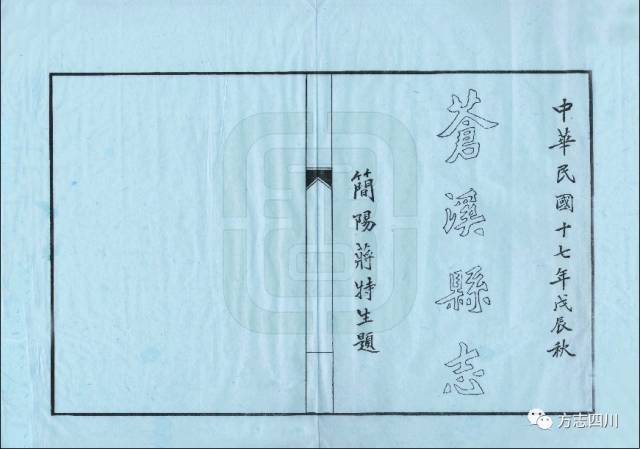 中華民國十七年戊辰秋
蒼溪縣志
簡陽蔣特生題
方志四川